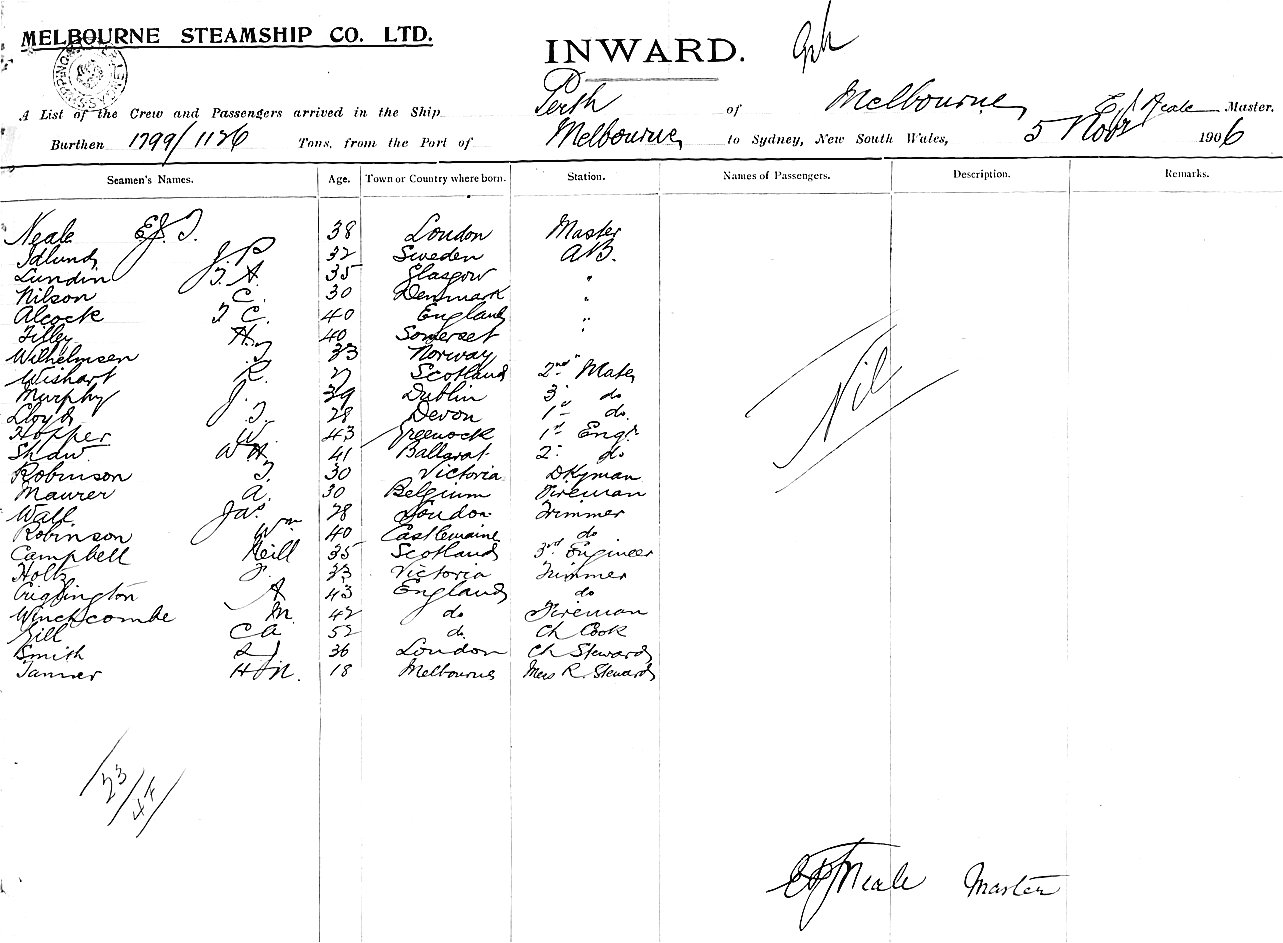 MELBOURNE STEAMSHIP CO. LTD.
INWARD.
A List of the Crew and Passengers arrived in the Ship Perth of Melbourne, E J Neale Master.
Burthen 1799/1126 Tons, from the Port of Melbourne to Sydney, New South Wales, 5 Novr 1906
Seamen's Names. Age. Town or Country where born. Station. Names of Passengers. Description. Remarks.
Neale E.J. T. 38 London Master
Idlund J. P 32 Sweden AB.
Lundin T. A. 35 Glasgow "
Nilson C. 30 Denmark "
Alcock T C. 40 England "
Tilley H. 40 Somerset "
Wilhelmsen T 33 Norway "
Wishart R. 27 Scotland 2nd Mate
Murphy J. 39 Dublin 3rd do
Lloyd T. 28 Devon 1st do.
Hopper W. 43 Greenock 1st Engr
Shaw W H 41 Ballarat 2nd do
Robinson T. 30 Victoria Dkyman
Maurer A. 30 Belgium Fireman
Wall Jas 28 London Trimmer
Robinson Wm 40 Castlemaine do
Campbell Neill 35 Scotland 3rd Engineer
Holtz F. 33 Victoria Trimmer
A 43 England do
Winchcombe M. 42 do Fireman
Gill C A 52 do. Ch Cook
Smith 36 London Ch Steward
Tanner H N. 18 Melbourne Mess R. Steward
Nil
23/
E J Neale Master